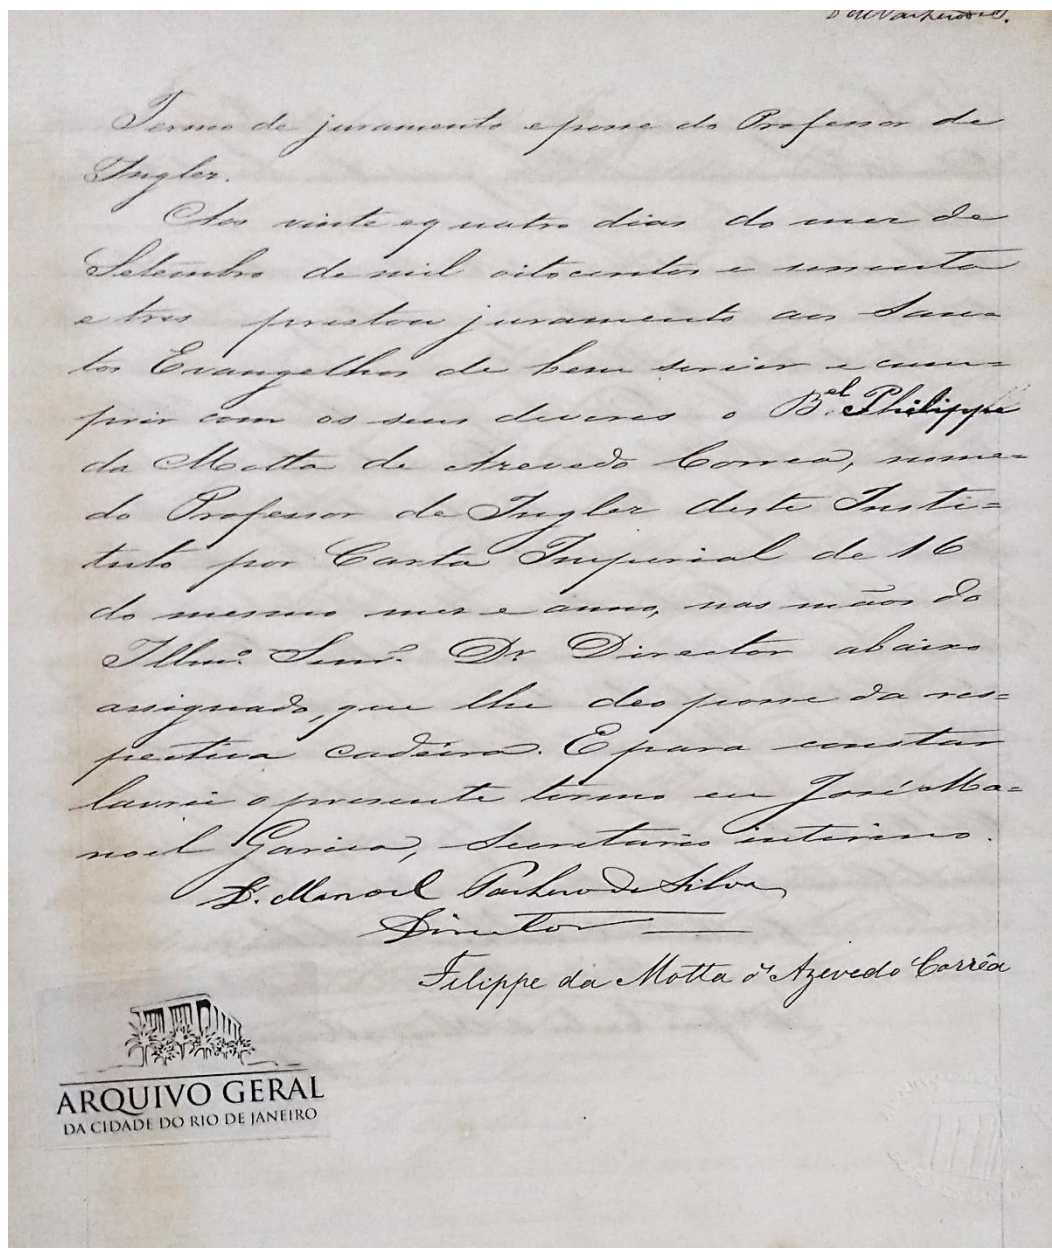 Termo de juramento e posse do Professor de
Inglez.
Aos vinte e quatro dias do mez de
Setembro de mil oitocentos e sessenta
e tres prestou juramento aos San=
tos Evangelhos de bem servir e cum=
prir com os seus deveres o B.el Philippe
da Motta de Azevedo Correa, nomea=
do Professor de Inglez deste Insti=
tuto por Carta Imperial de 16
do mesmo mez e anno, nas mãos do
Illmo. Snnr. Dr Director abaixo
assignado, que lhe deo posse da res=
pectiva cadeira. E para constar
lavrei o presente termo eu José Ma=
noel Garcia, Secretario interino.
Dr. Manoel Pacheco da Silva
Director
Filippe da Motta d'Azevedo Corrêa
ARQUIVO GERAL
DA CIDADE DO RIO DE JANEIRO